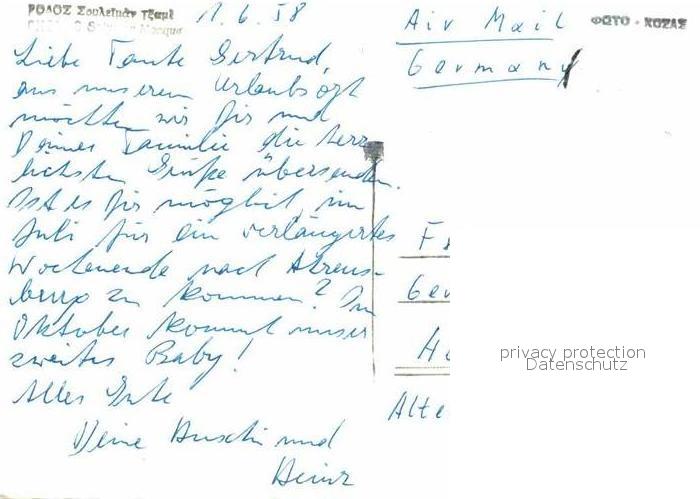 ΡΟΔΟΣ Σουλεϊμὰν Τζαμὶ
1.6.58
Liebe Tante Gertrud,
aus unserem Urlaubsort
möchten wir Dir und
Deiner Familie die herz-
lichsten Grüße übersenden.
Ist es Dir möglich, im
Juli für ein verlängertes
Wochenende nach Ahrens-
burg zu kommen? Im
Oktober kommt unser
zweites Baby!
Alles Gute
Deine Uschi und
Heinz
Air Mail
ΦΩΤΟ - ΚΟΖΑΣ
Germany
F
Ger
Ha
Alte
privacy protection
Datenschutz